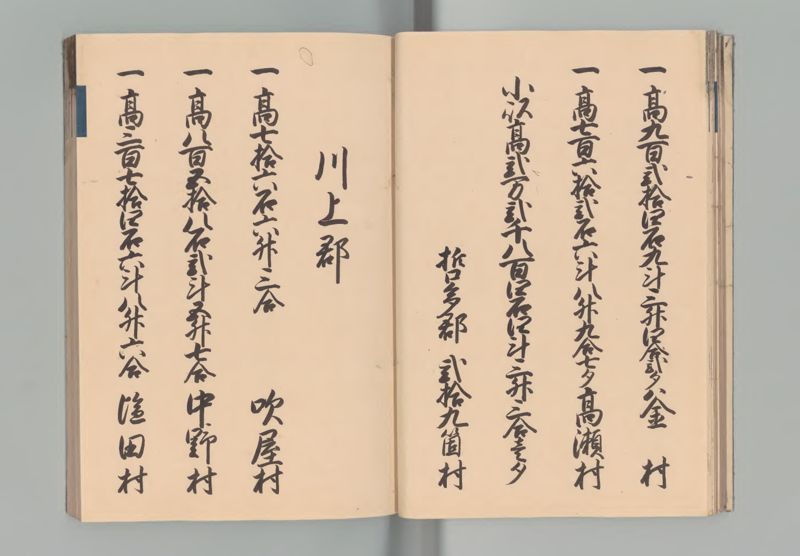 一高九百弐拾四石九斗三升四合弐夕 釜 村
一高七百六拾弐石六斗八升九合七夕 高瀬村
小以高弐万弐千八百四石四斗三升三合壱夕
哲多郡 弐拾九箇村
川上郡
一高七拾六石六升三合 吹屋村
一高八百五拾八石弐斗五升七合 中野村
一高三百七拾四石六斗八升六合 塩田村